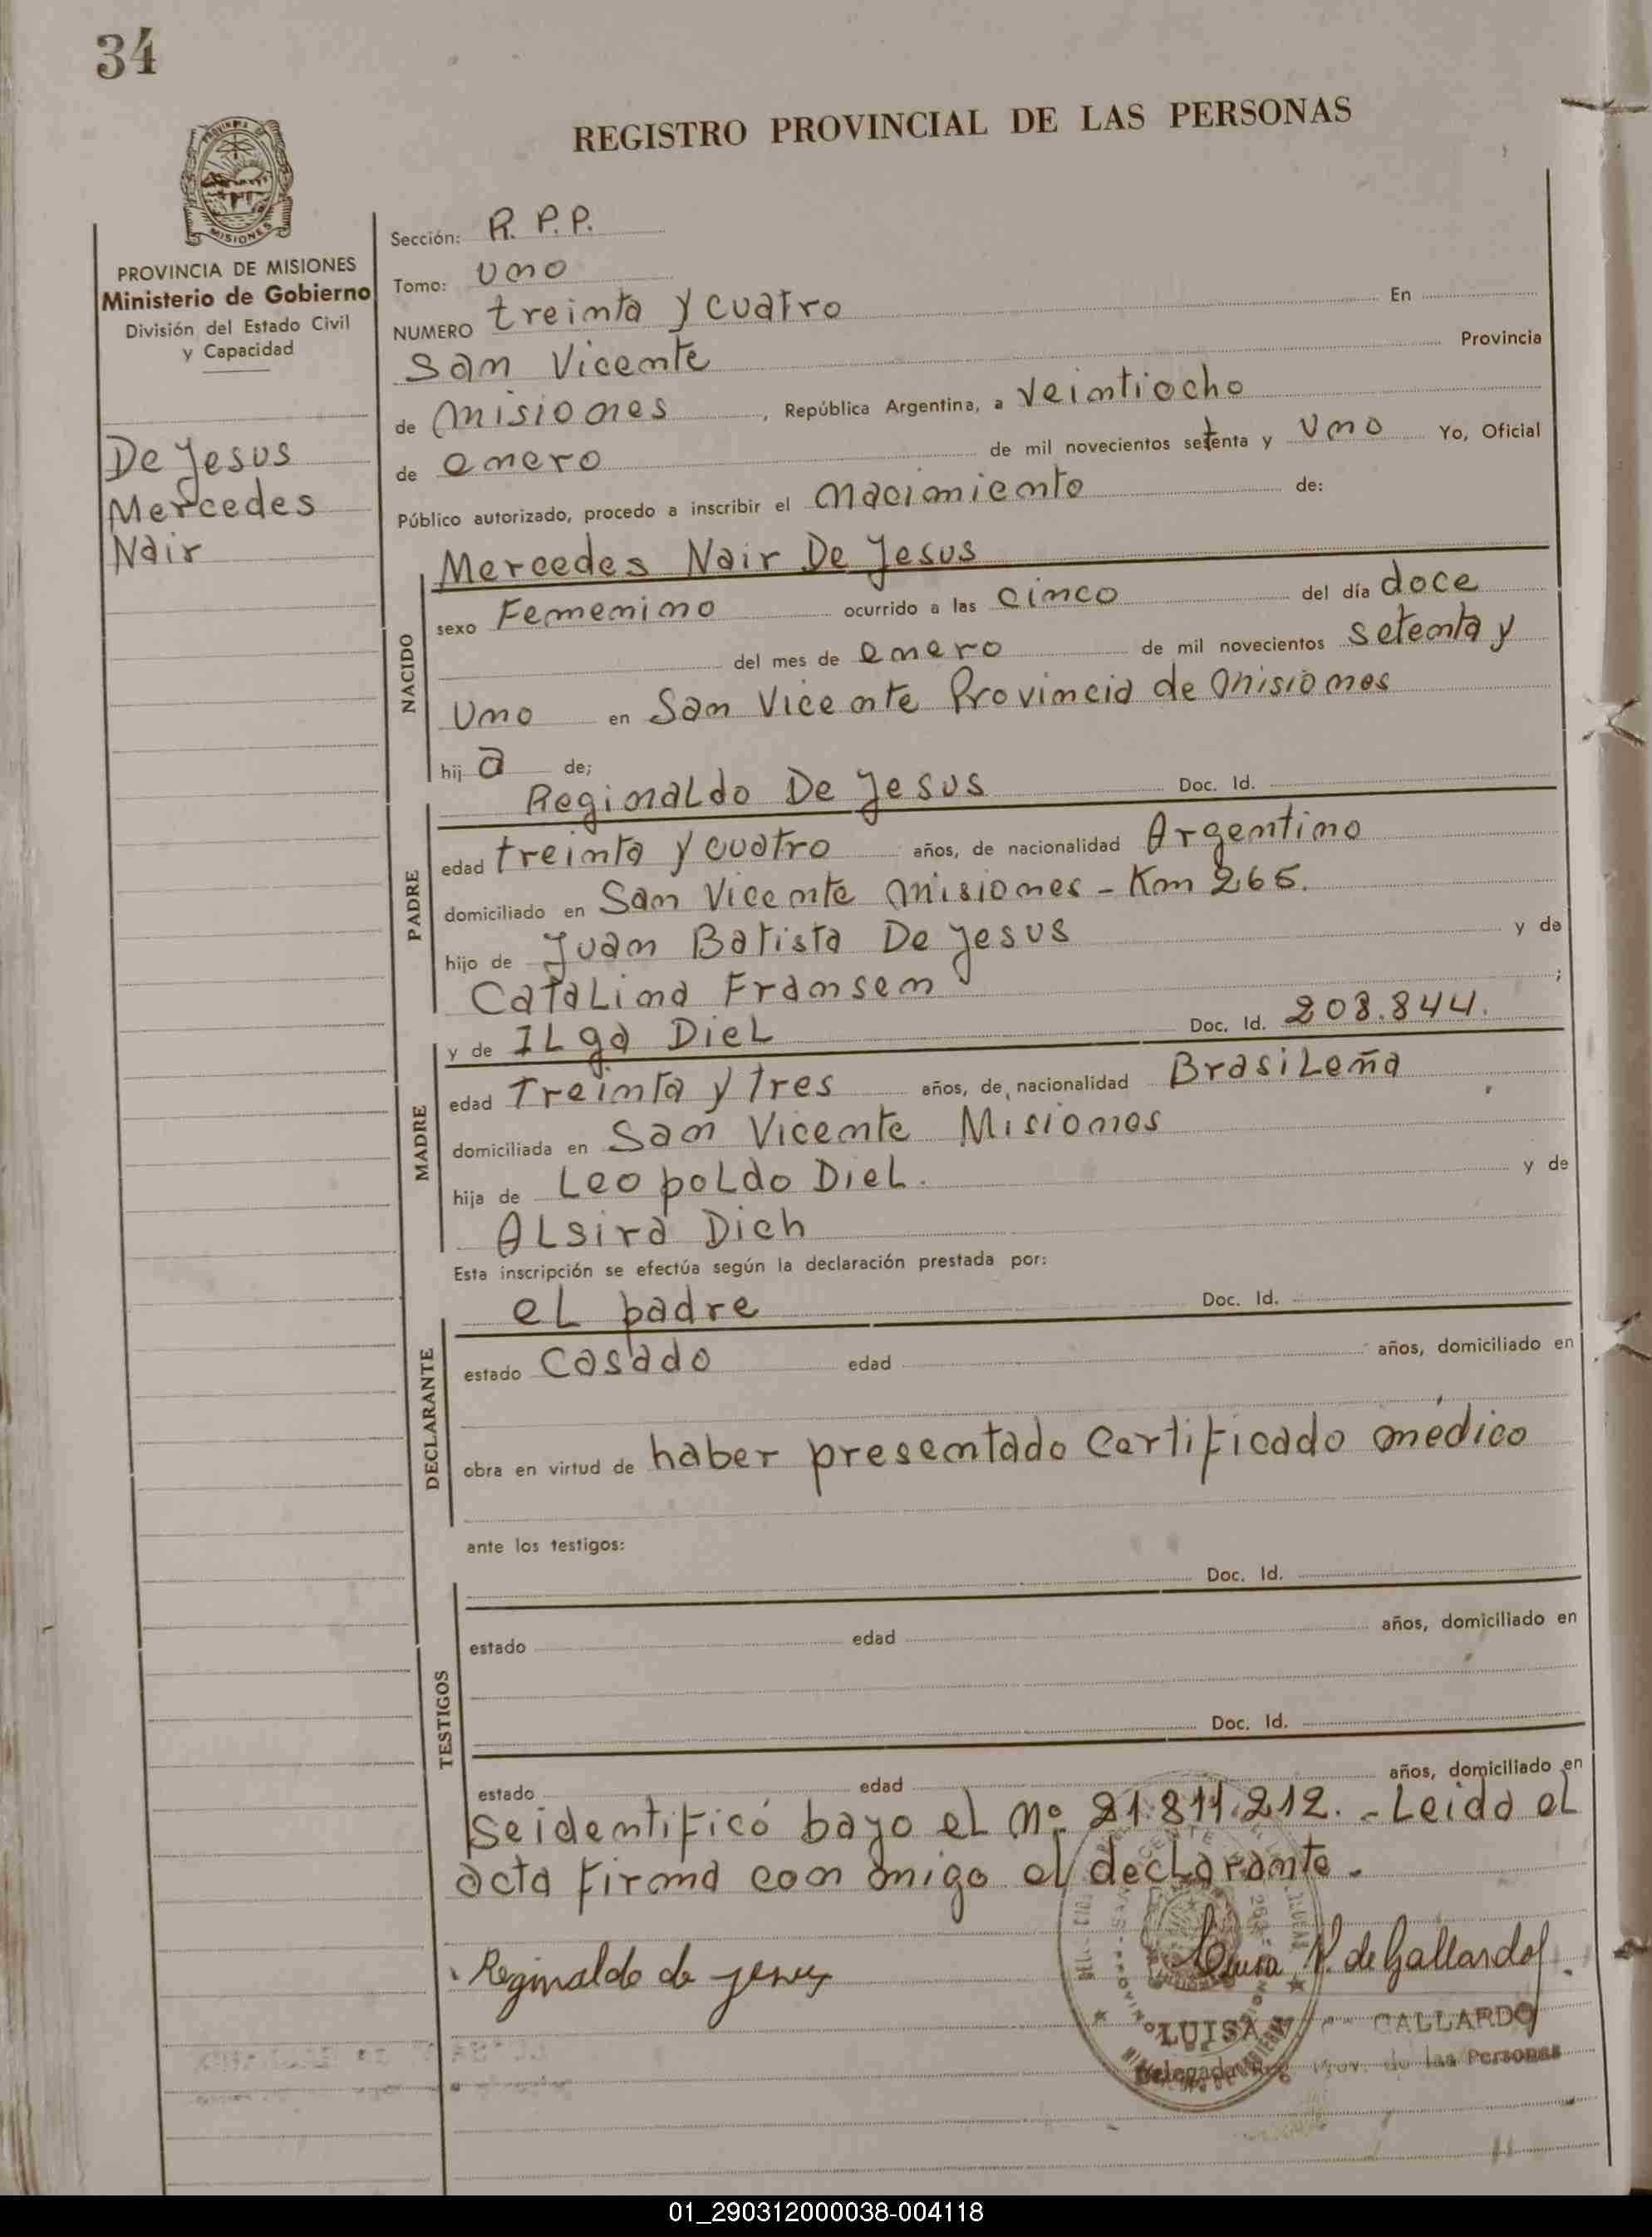 34
REGISTRO PROVINCIAL DE LAS PERSONAS
PROVINCIA DE MISIONES
Ministerio de Gobierno
División del Estado Civil
y Capacidad
De Jesus
Mercedes
Nair
Sección: R. P. P.
Tomo: Uno
NUMERO treinta y cuatro En
San Vicente Provincia
de Misiones, República Argentina, a Veintiocho
de enero de mil novecientos setenta y Uno Yo, Oficial
Público autorizado, procedo a inscribir el nacimiento de:
Mercedes Nair De Jesus
NACIDO
sexo Femenino ocurrido a las cinco del día doce
del mes de enero de mil novecientos setenta y
Uno en San Vicente Provincia de Misiones
hija de;
Reginaldo De Jesus Doc. Id.
PADRE
edad treinta y cuatro años, de nacionalidad Argentino
domiciliado en San Vicente Misiones - Km 265.
hijo de Juan Batista De Jesus y de
Catalina Fransen ;
y de ILga Diel Doc. Id. 208.844.
MADRE
edad Treinta y tres años, de nacionalidad Brasileña
domiciliada en San Vicente Misiones
hija de Leopoldo Diel. y de
Alsira Dich
Esta inscripción se efectúa según la declaración prestada por:
el padre Doc. Id.
DECLARANTE
estado Casado edad años, domiciliado en
obra en virtud de haber presentado Certificado médico
ante los testigos:
Doc. Id.
TESTIGOS
estado edad años, domiciliado en
Doc. Id.
estado edad años, domiciliado en
Se identificó bajo el Nº 21.811.212. - Leida el
acta firma con migo el declarante.
Reginaldo de Jesus
Luisa V. de Gallardo
LUISA V. DE GALLARDO
Delegada Reg. Prov. de las Personas
01_290312000038-004118